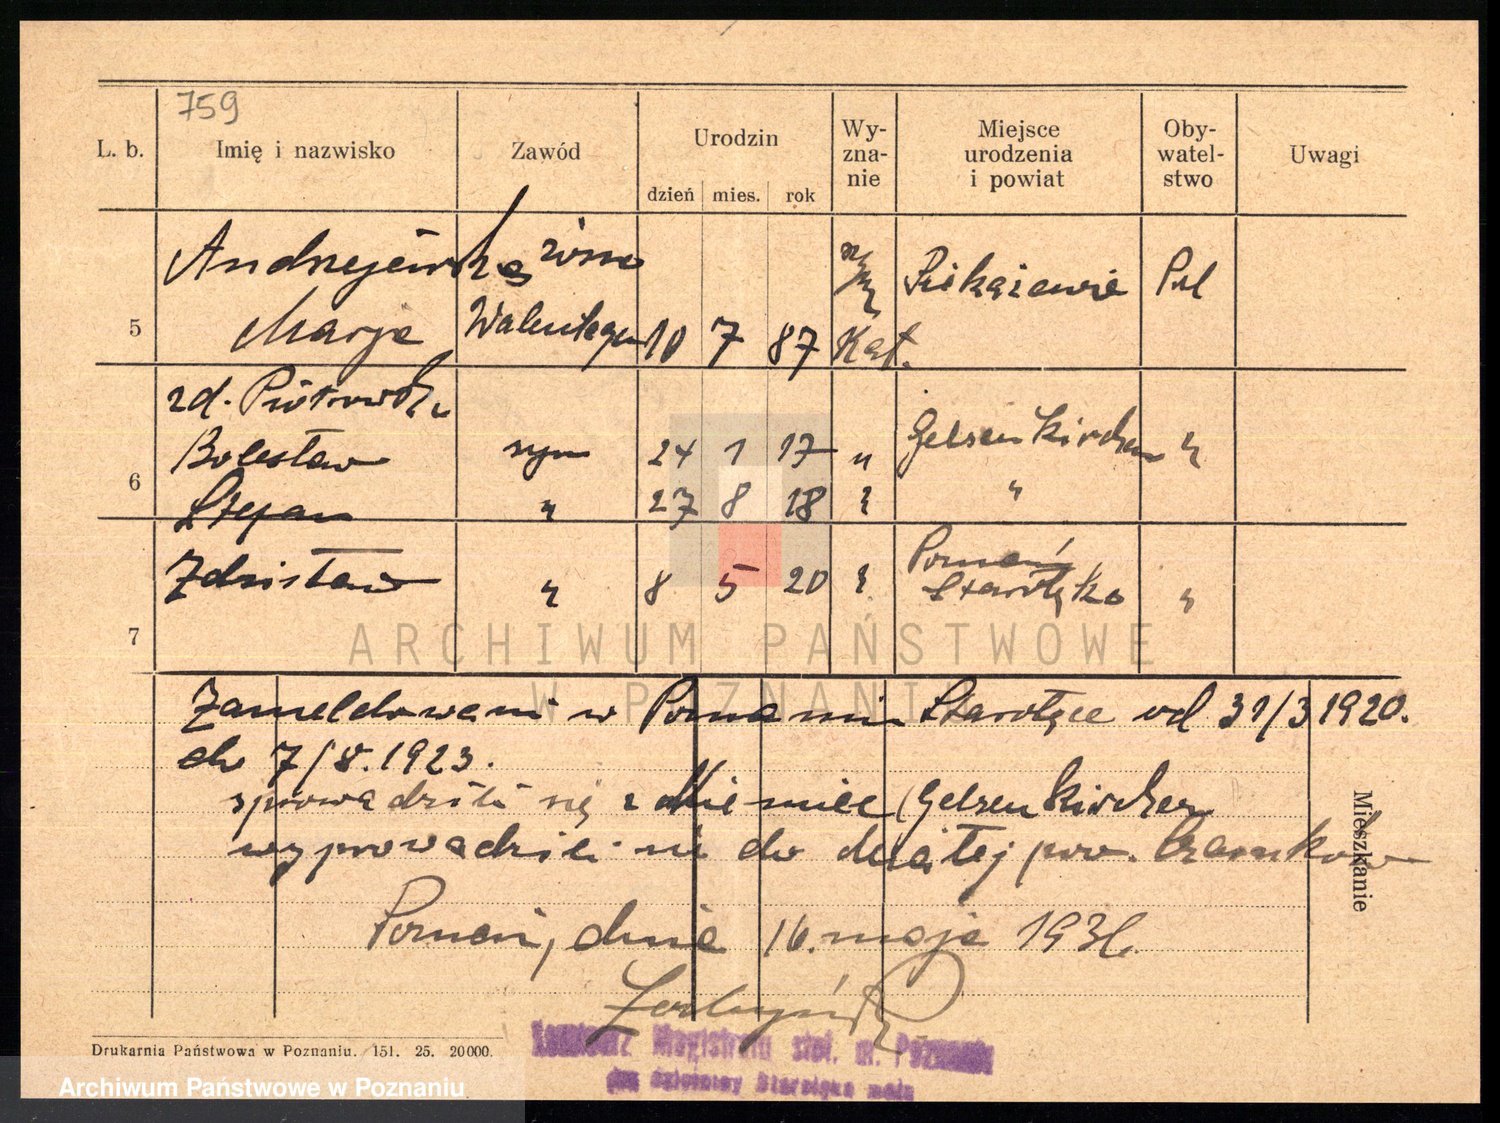 759
L. b.
Imię i nazwisko
Zawód
Urodzin
dzień mies. rok
Wy-
zna-
nie
Miejsce
urodzenia
i powiat
Oby-
watel-
stwo
Uwagi
5
Andrzejewska żona
Marja Walentego 10 7 87 rzym Kat. Pol
zd. Piotrowska
6
Bolesław syn 24 1 17 " Gelsenkirchen "
Stefan " 27 8 18 " "
7
Zdzisław " 8 5 20 " Poznań Starołęka "
Zameldowani w Poznaniu Starołęce od 31/3 1920.
do 7/8. 1923.
sprowadzili się z Niemiec (Gelsenkirchen
wyprowadzili się do pow. Czarnków
Poznań, dnia 16. maja 1931.
Mieszkanie
Magistratu stoł. m. Poznania
Starołęka mała
Drukarnia Państwowa w Poznaniu. 151. 25. 20000.
ARCHIWUM PAŃSTWOWE
W POZNANIU
Archiwum Państwowe w Poznaniu